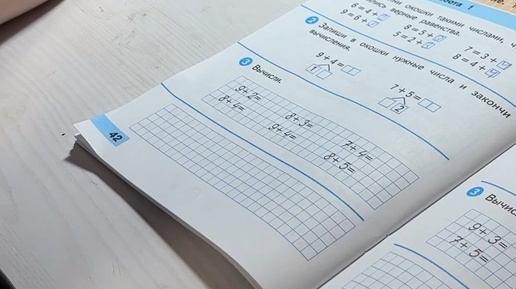 бота 1
ти окошки такими числами, ч
лись верные равенства.
6 = 4 +
8 = 5 +
7 = 3 +
9 = 6 +
5 = 2 +
8 = 4 + 4
2 Запиши в окошки нужные числа и закончи
вычисления.
9 + 4 =
7 + 5 =
2
3 Вычисли.
9+2= 8+3= 7+4=
8+4= 9+4= 8+5=
42
3 Вычис
9+3=
7+5=